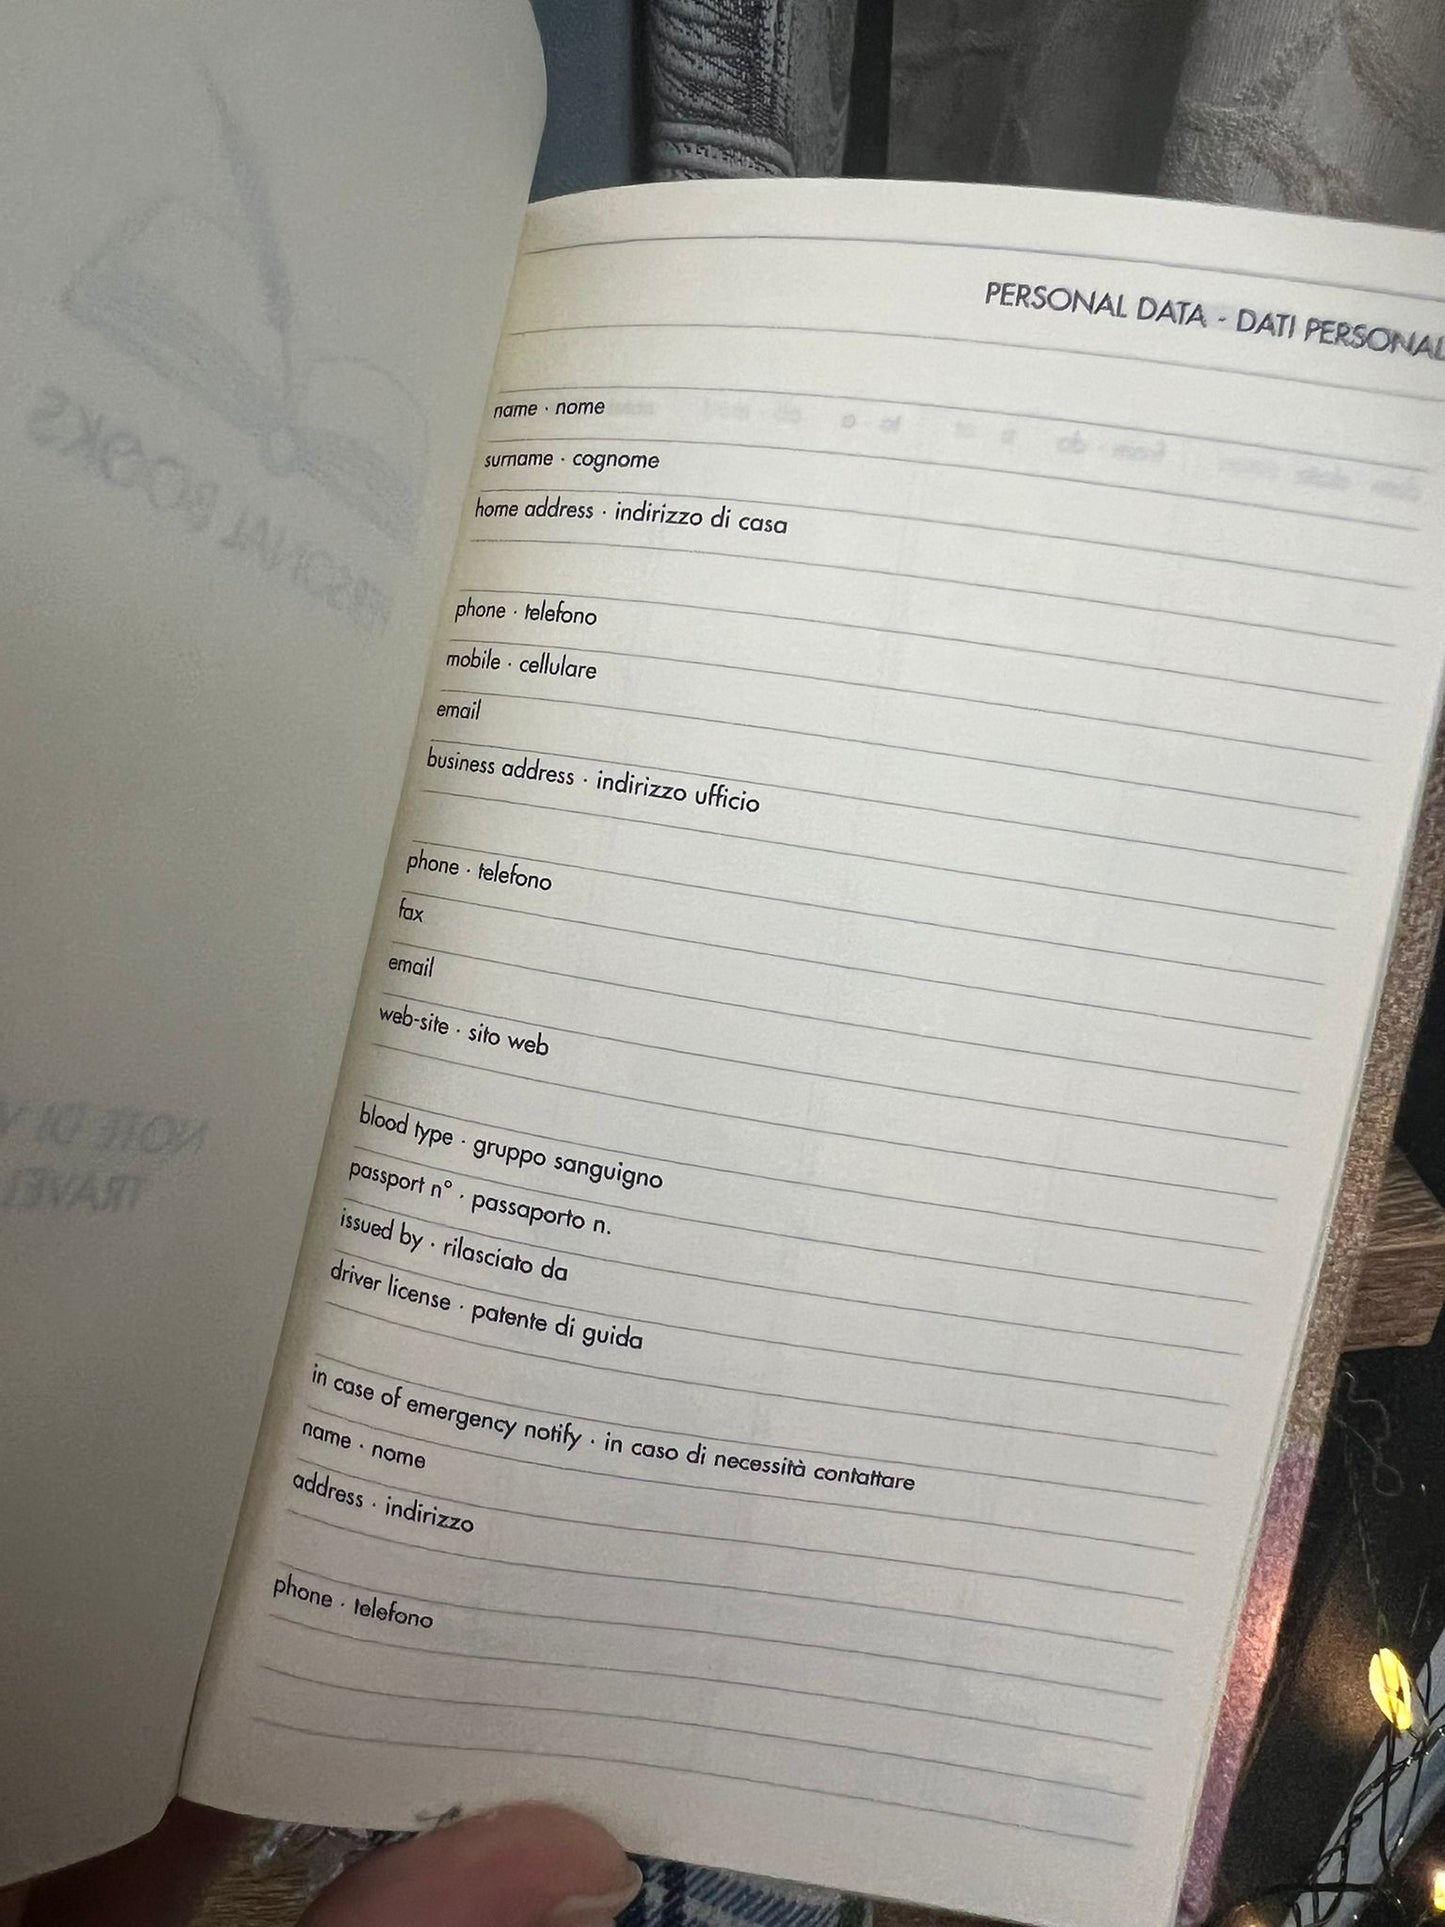 PERSONAL BOOKS
NOTE DI
TRAVEL
PERSONAL DATA - DATI PERSONAL
name · nome
surname · cognome
home address · indirizzo di casa
phone · telefono
mobile · cellulare
email
business address · indirizzo ufficio
phone · telefono
fax
email
web-site · sito web
blood type · gruppo sanguigno
passport n° · passaporto n.
issued by · rilasciato da
driver license · patente di guida
in case of emergency notify · in caso di necessità contattare
name · nome
address · indirizzo
phone · telefono